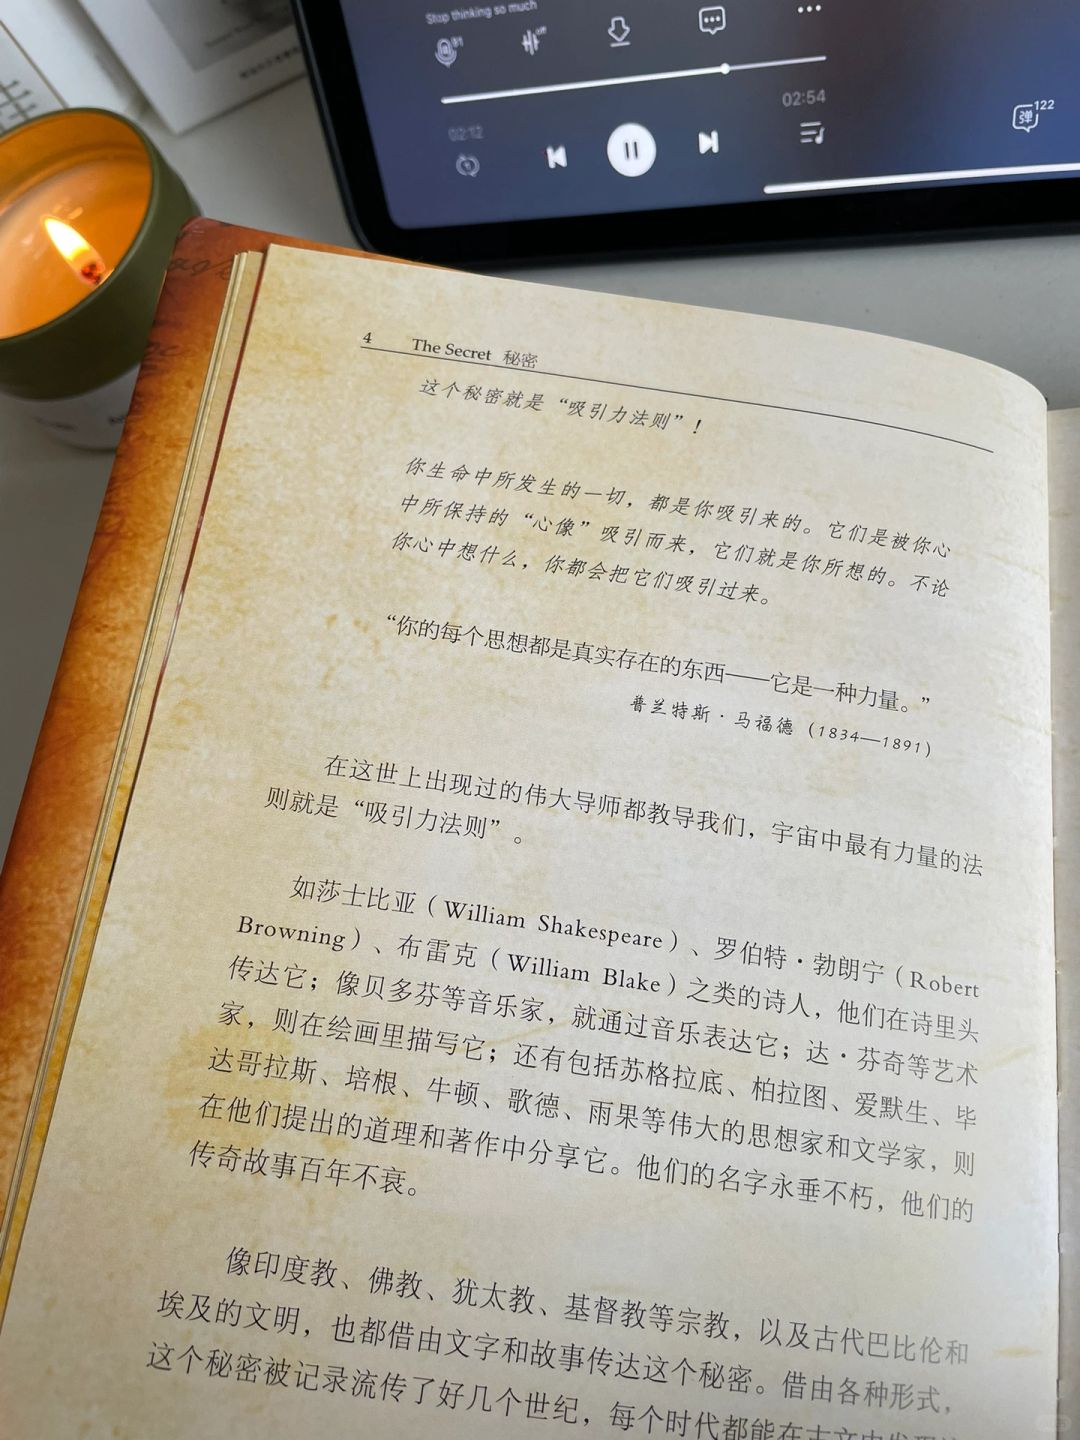 Stop thinking so much
02:12
02:54
弹 122
4 The Secret 秘密
这个秘密就是“吸引力法则”！
你生命中所发生的一切，都是你吸引来的。它们是被你心
中所保持的“心像”吸引而来，它们就是你所想的。不论
你心中想什么，你都会把它们吸引过来。
“你的每个思想都是真实存在的东西——它是一种力量。”
普兰特斯·马福德（1834—1891）
在这世上出现过的伟大导师都教导我们，宇宙中最有力量的法
则就是“吸引力法则”。
如莎士比亚（William Shakespeare）、罗伯特·勃朗宁（Robert
Browning）、布雷克（William Blake）之类的诗人，他们在诗里头
传达它；像贝多芬等音乐家，就通过音乐表达它；达·芬奇等艺术
家，则在绘画里描写它；还有包括苏格拉底、柏拉图、爱默生、毕
达哥拉斯、培根、牛顿、歌德、雨果等伟大的思想家和文学家，则
在他们提出的道理和著作中分享它。他们的名字永垂不朽，他们的
传奇故事百年不衰。
像印度教、佛教、犹太教、基督教等宗教，以及古代巴比伦和
埃及的文明，也都借由文字和故事传达这个秘密。借由各种形式，
这个秘密被记录流传了好几个世纪，每个时代都能在古文中发现